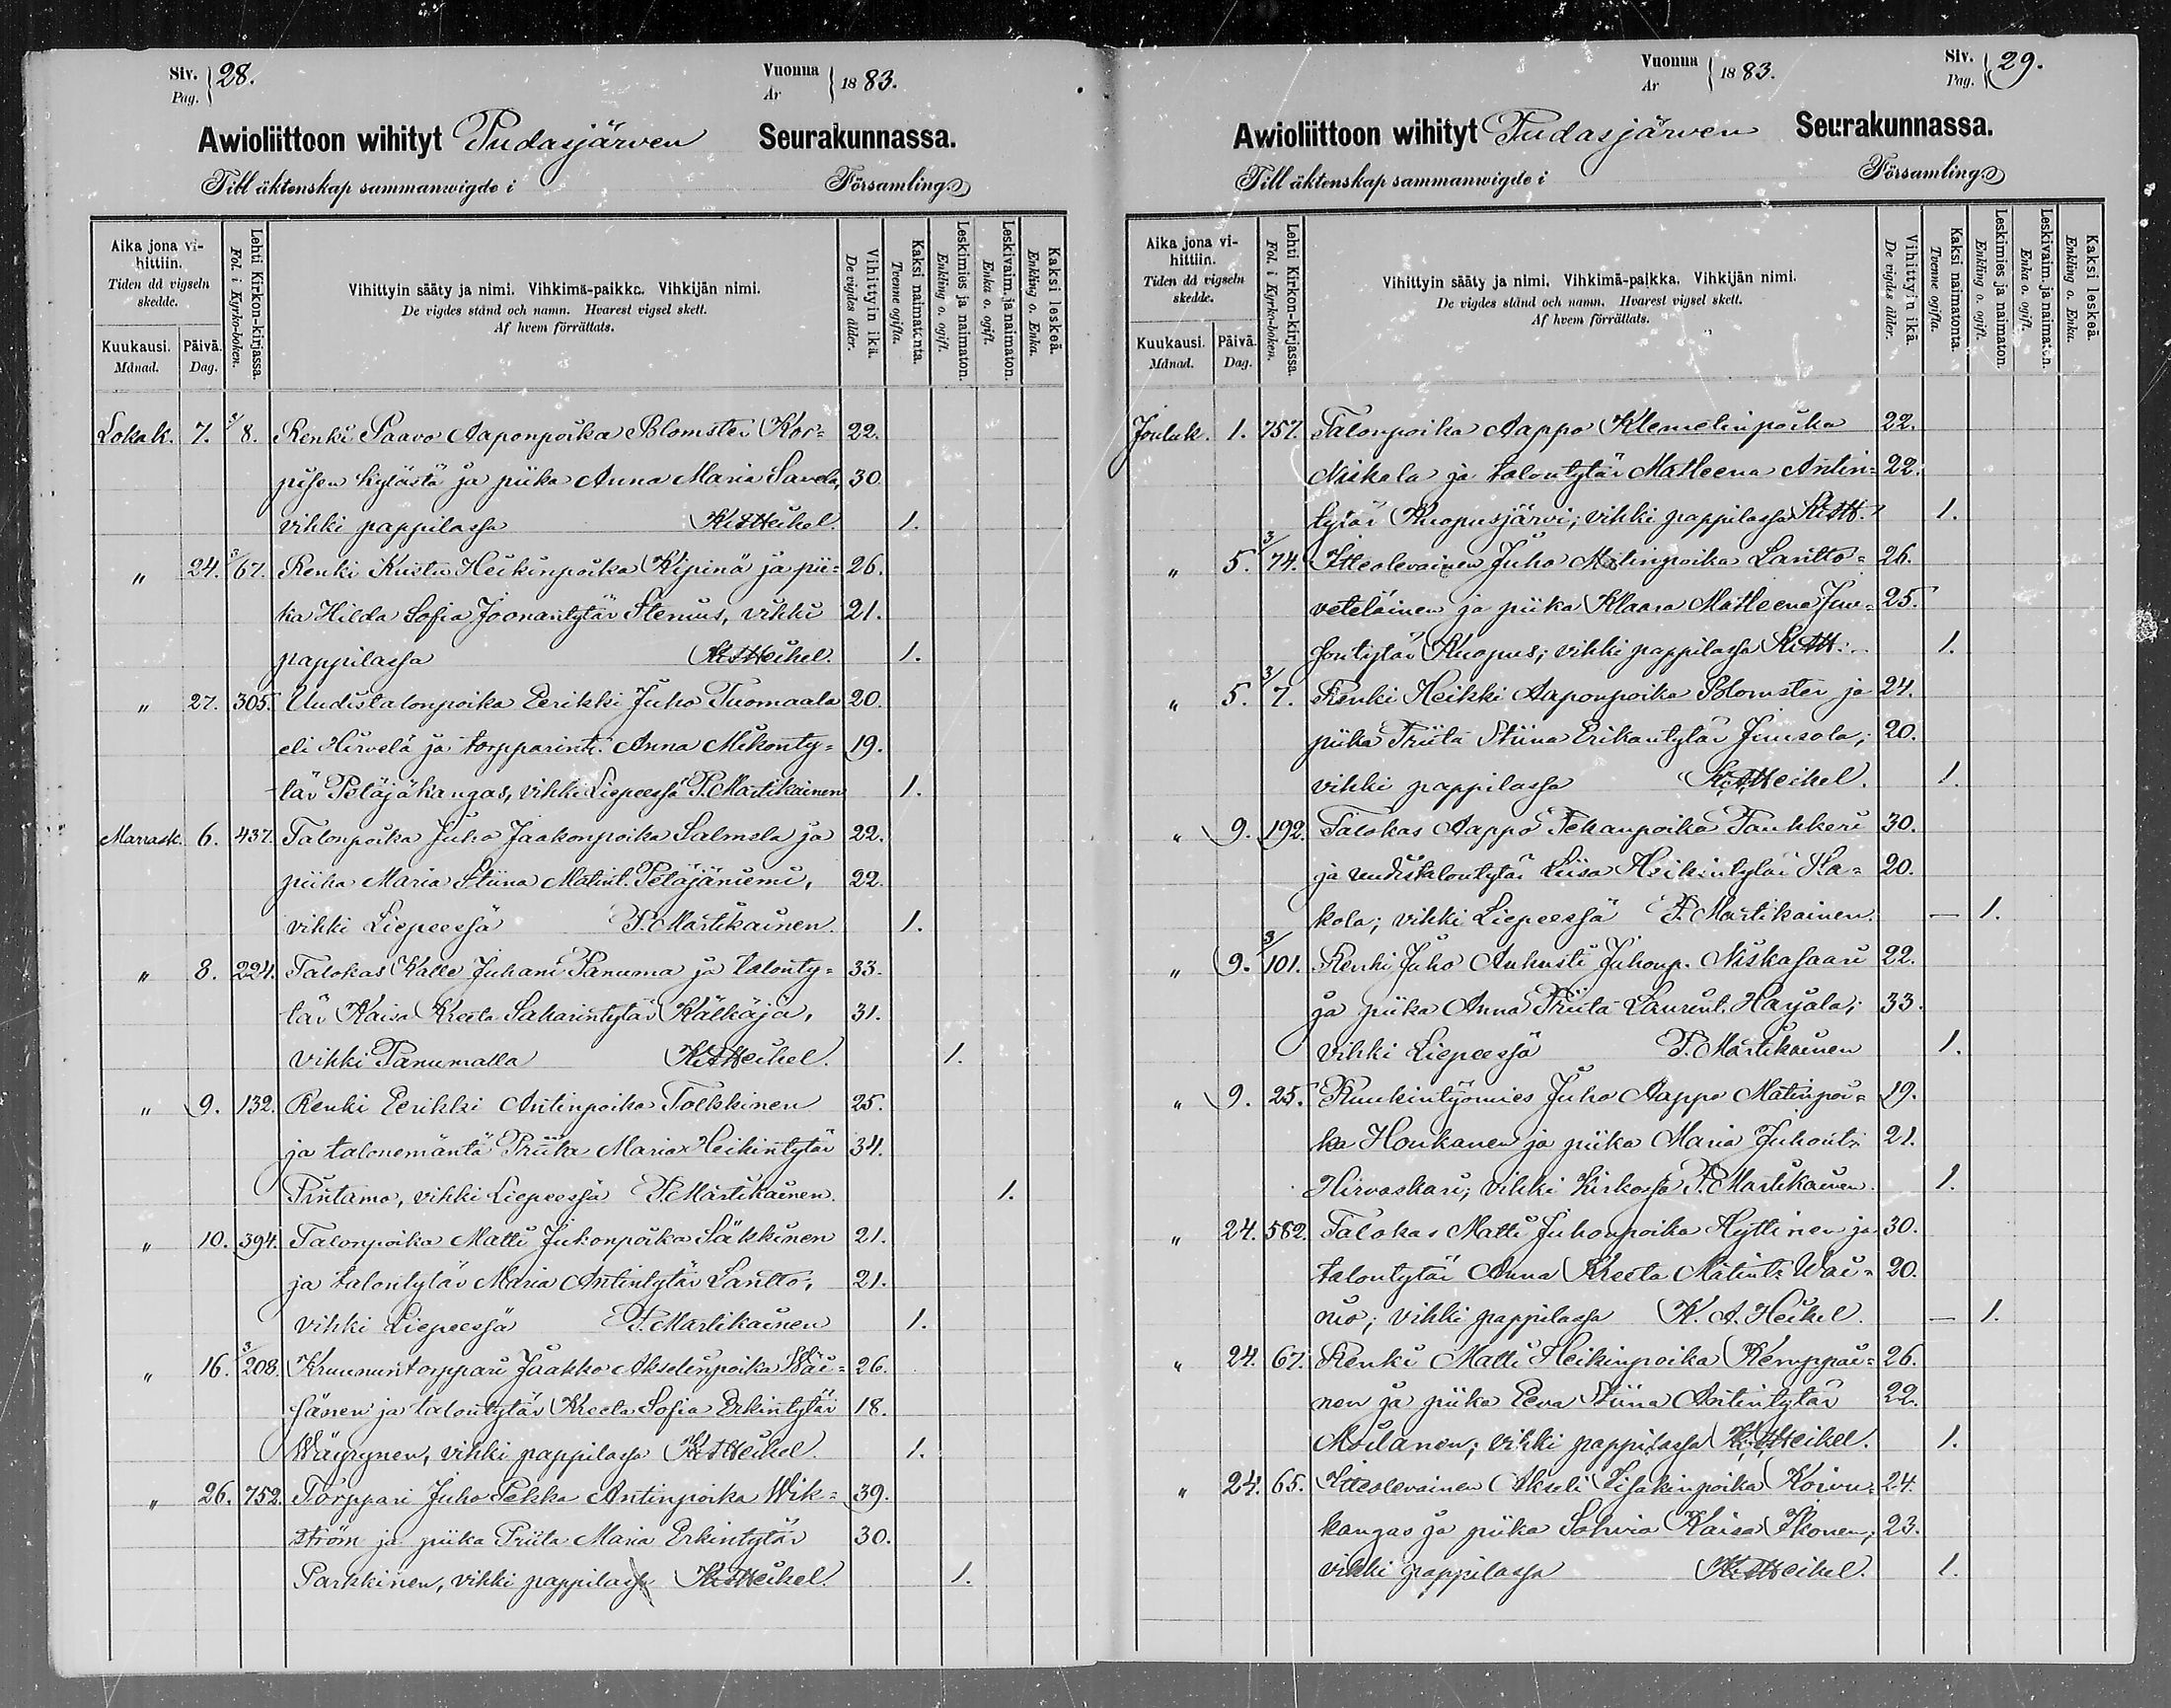 Siv. 28.
Pag.
Vuonna 1883.
År
Awioliittoon wihityt Pudasjärven Seurakunnassa.
Till äktenskap sammanwigde i Församling
Aika jona vi-
hittiin.
Tiden då vigseln
skedde.
Kuukausi.
Månad.
Päivä.
Dag.
Lehti Kirkon-kirjassa.
Fol. i Kyrko-boken.
Vihittyin sääty ja nimi. Vihkimä-paikka. Vihkijän nimi.
De vigdes stånd och namn. Hvarest vigsel skett.
Af hvem förrättats.
Vihittyin ikä.
De vigdes ålder.
Kaksi naimatonta.
Tvenne ogifta.
Leskimies ja naimaton.
Enkling o. ogift.
Leskivaim. ja naimaton.
Enka o. ogift.
Kaksi leskeä.
Enkling o. Enka.
Lokak. 7. 8. Renki Paavo Aaponpoika Blomster Kor= 22.
pisen kylästä ja piika Anna Maria Savela, 30
vihki pappilassa K.A.Heikel. 1.
" 24. 3/67. Renki Kustu Heikinpoika Kipinä ja pii= 26.
ka Hilda Sofia Joonantytär Stenius, vihki 21.
pappilassa K.A.Heikel. 1.
" 27. 305. Uudistalonpoika Eerikki Juho Tuomaala 20.
eli Hirvelä ja torpparint. Anna Mikonty= 19.
tär Petäjäkangas, vihki Liepeessä P. Martikainen 1.
Marrask. 6. 437. Talonpoika Juho Jaakonpoika Salmela ja 22.
piika Maria Stiina Matint. Petäjäniemi, 22.
vihki Liepeessä P. Martikainen. 1.
" 8. 224. Talokas Kalle Juhani Panuma ja talonty= 33.
tär Kaisa Kreeta Sakarintytär Kälkäjä, 31.
vihki Panumalla K.A.Heikel. 1.
" 9. 132. Renki Eerikki Antinpoika Tolkkinen 25.
ja talonemäntä Priita Maria Heikintytär 34.
Piitamo, vihki Liepeessä P. Martikainen. 1.
" 10. 394. Talonpoika Matti Juhonpoika Säkkinen 21.
ja talontytär Maria Antintytär Lantto, 21.
vihki Liepeessä P. Martikainen 1.
" 16. 3/208. Kruununtorppari Jaakko Akselinpoika Wäi= 26.
sänen ja talontytär Kreeta Sofia Erkintytär 18.
Wäyrynen, vihki pappilassa K.A.Heikel. 1.
" 26. 752. Torppari Juho Pekka Antinpoika Wik= 39.
ström ja piika Priita Maria Erkintytär 30.
Parkkinen, vihki pappilassa K.A.Heikel. 1.
Vuonna 1883.
År
Siv. 29.
Pag.
Awioliittoon wihityt Pudasjärven Seurakunnassa.
Till äktenskap sammanwigde i Församling
Aika jona vi-
hittiin.
Tiden då vigseln
skedde.
Kuukausi.
Månad.
Päivä.
Dag.
Lehti Kirkon-kirjassa.
Fol. i Kyrko-boken.
Vihittyin sääty ja nimi. Vihkimä-paikka. Vihkijän nimi.
De vigdes stånd och namn. Hvarest vigsel skett.
Af hvem förrättats.
Vihittyin ikä.
De vigdes ålder.
Kaksi naimatonta.
Tvenne ogifta.
Leskimies ja naimaton.
Enkling o. ogift.
Leskivaim. ja naimaton.
Enka o. ogift.
Kaksi leskeä.
Enkling o. Enka.
Jouluk. 1. 757. Talonpoika Aappo Klemetinpoika 22.
Niskala ja talontytär Matleena Antin= 22.
tytär Kuopusjärvi; vihki pappilassa K.A.H. 1.
" 5. 3/74. Itteolevainen Juho Matinpoika Lantto= 26.
veteläinen ja piika Klaara Matleena Juu= 25.
sontytär Kuopus; vihki pappilassa K.A.H. 1.
" 5. 3/7. Renki Heikki Aaponpoika Blomster ja 24.
piika Priita Stiina Erikantytär Juusola; 20.
vihki pappilassa K.A.Heikel. 1.
" 9. 192. Talokas Aappo Tehanpoika Tauhkeri 30.
ja uudistalontytär Liisa Heikintytär Ha= 20.
kola; vihki Liepeessä P. Martikainen. — 1.
" 9. 3/101. Renki Juho Auhusti Juhonp. Niskasaari 22.
ja piika Anna Priita Laurint. Harjala; 33.
vihki Liepeessä P. Martikainen 1.
" 9. 25. Ruukintyömies Juho Aappo Matinpoi= 19.
ka Honkanen ja piika Maria Juhont. 21.
Hirvaskari; vihki Kirkossa P. Martikainen. 1.
" 24. 582. Talokas Matti Juhonpoika Hyttinen ja 30.
talontytär Anna Kreeta Matint. Wai= 20.
nio; vihki pappilassa K. A. Heikel. — 1.
" 24. 67. Renki Matti Heikinpoika Kemppai= 26.
nen ja piika Eeva Stiina Antintytär 22.
Moilanen; vihki pappilassa K.A.Heikel. 1.
" 24. 65. Itteolevainen Akseli Iisakinpoika Koivu= 24.
kangas ja piika Sohvia Kaisa Ikonen; 23.
vihki pappilassa K.A.Heikel. 1.